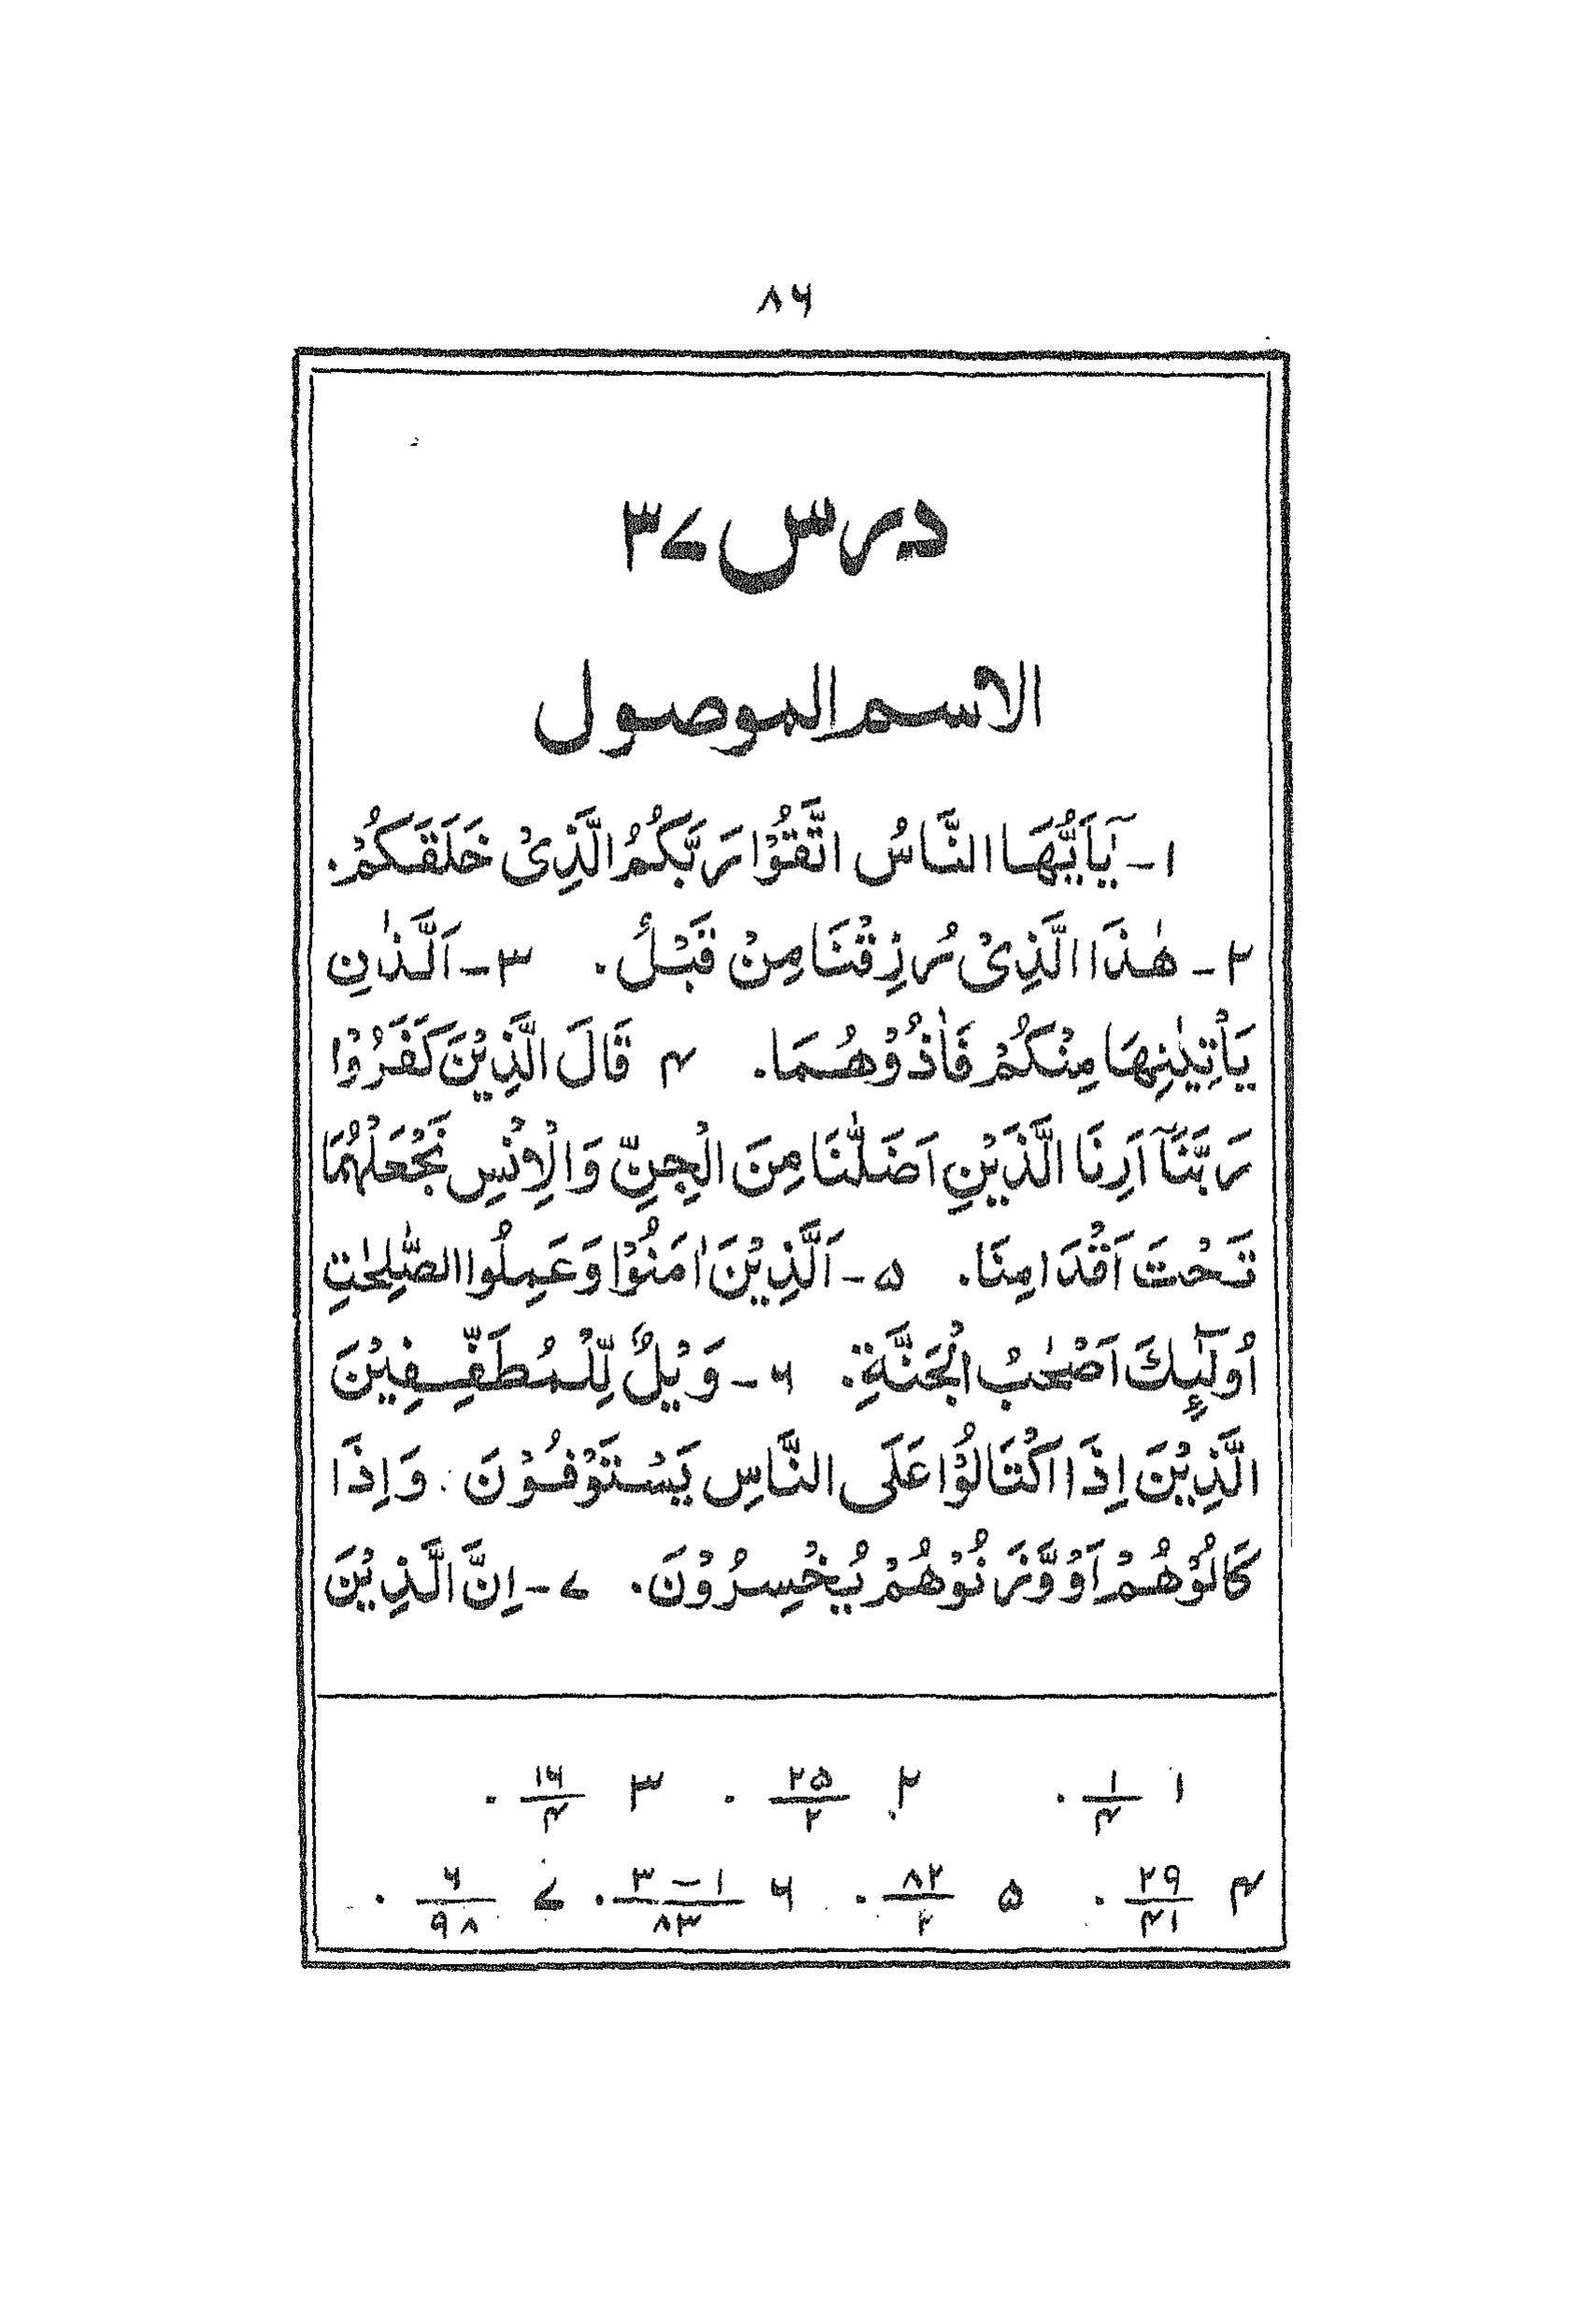 ۸۶
درس ۳۷
الاسم الموصول
۱- يٰٓاَيُّهَا النَّاسُ اتَّقُوْا رَبَّكُمُ الَّذِىْ خَلَقَكُمْ.
۲- هٰذَا الَّذِىْ رُزِقْنَا مِنْ قَبْلُ. ۳- اَلَّذٰنِ
يَاْتِيٰنِهَا مِنْكُمْ فَاٰذُوْهُمَا. ۴ قَالَ الَّذِيْنَ كَفَرُوْا
رَبَّنَآ اَرِنَا الَّذَيْنِ اَضَلّٰنَا مِنَ الْجِنِّ وَالْاِنْسِ نَجْعَلْهُمَا
تَحْتَ اَقْدَامِنَا. ۵- اَلَّذِيْنَ اٰمَنُوْا وَعَمِلُوا الصّٰلِحٰتِ
اُولٰٓئِكَ اَصْحٰبُ الْجَنَّةِ. ۶- وَيْلٌ لِّلْمُطَفِّفِيْنَ
الَّذِيْنَ اِذَا اكْتَالُوْا عَلَى النَّاسِ يَسْتَوْفُوْنَ. وَاِذَا
كَالُوْهُمْ اَوْ وَّزَنُوْهُمْ يُخْسِرُوْنَ. ۷- اِنَّ الَّذِيْنَ
۱ ۱/۴. ۲ ۲۵/۲. ۳ ۱۶/۴.
۴ ۲۹/۴۱. ۵ ۸۲/۲. ۶ ۱-۳/۸۳. ۷ ۶/۹۸.